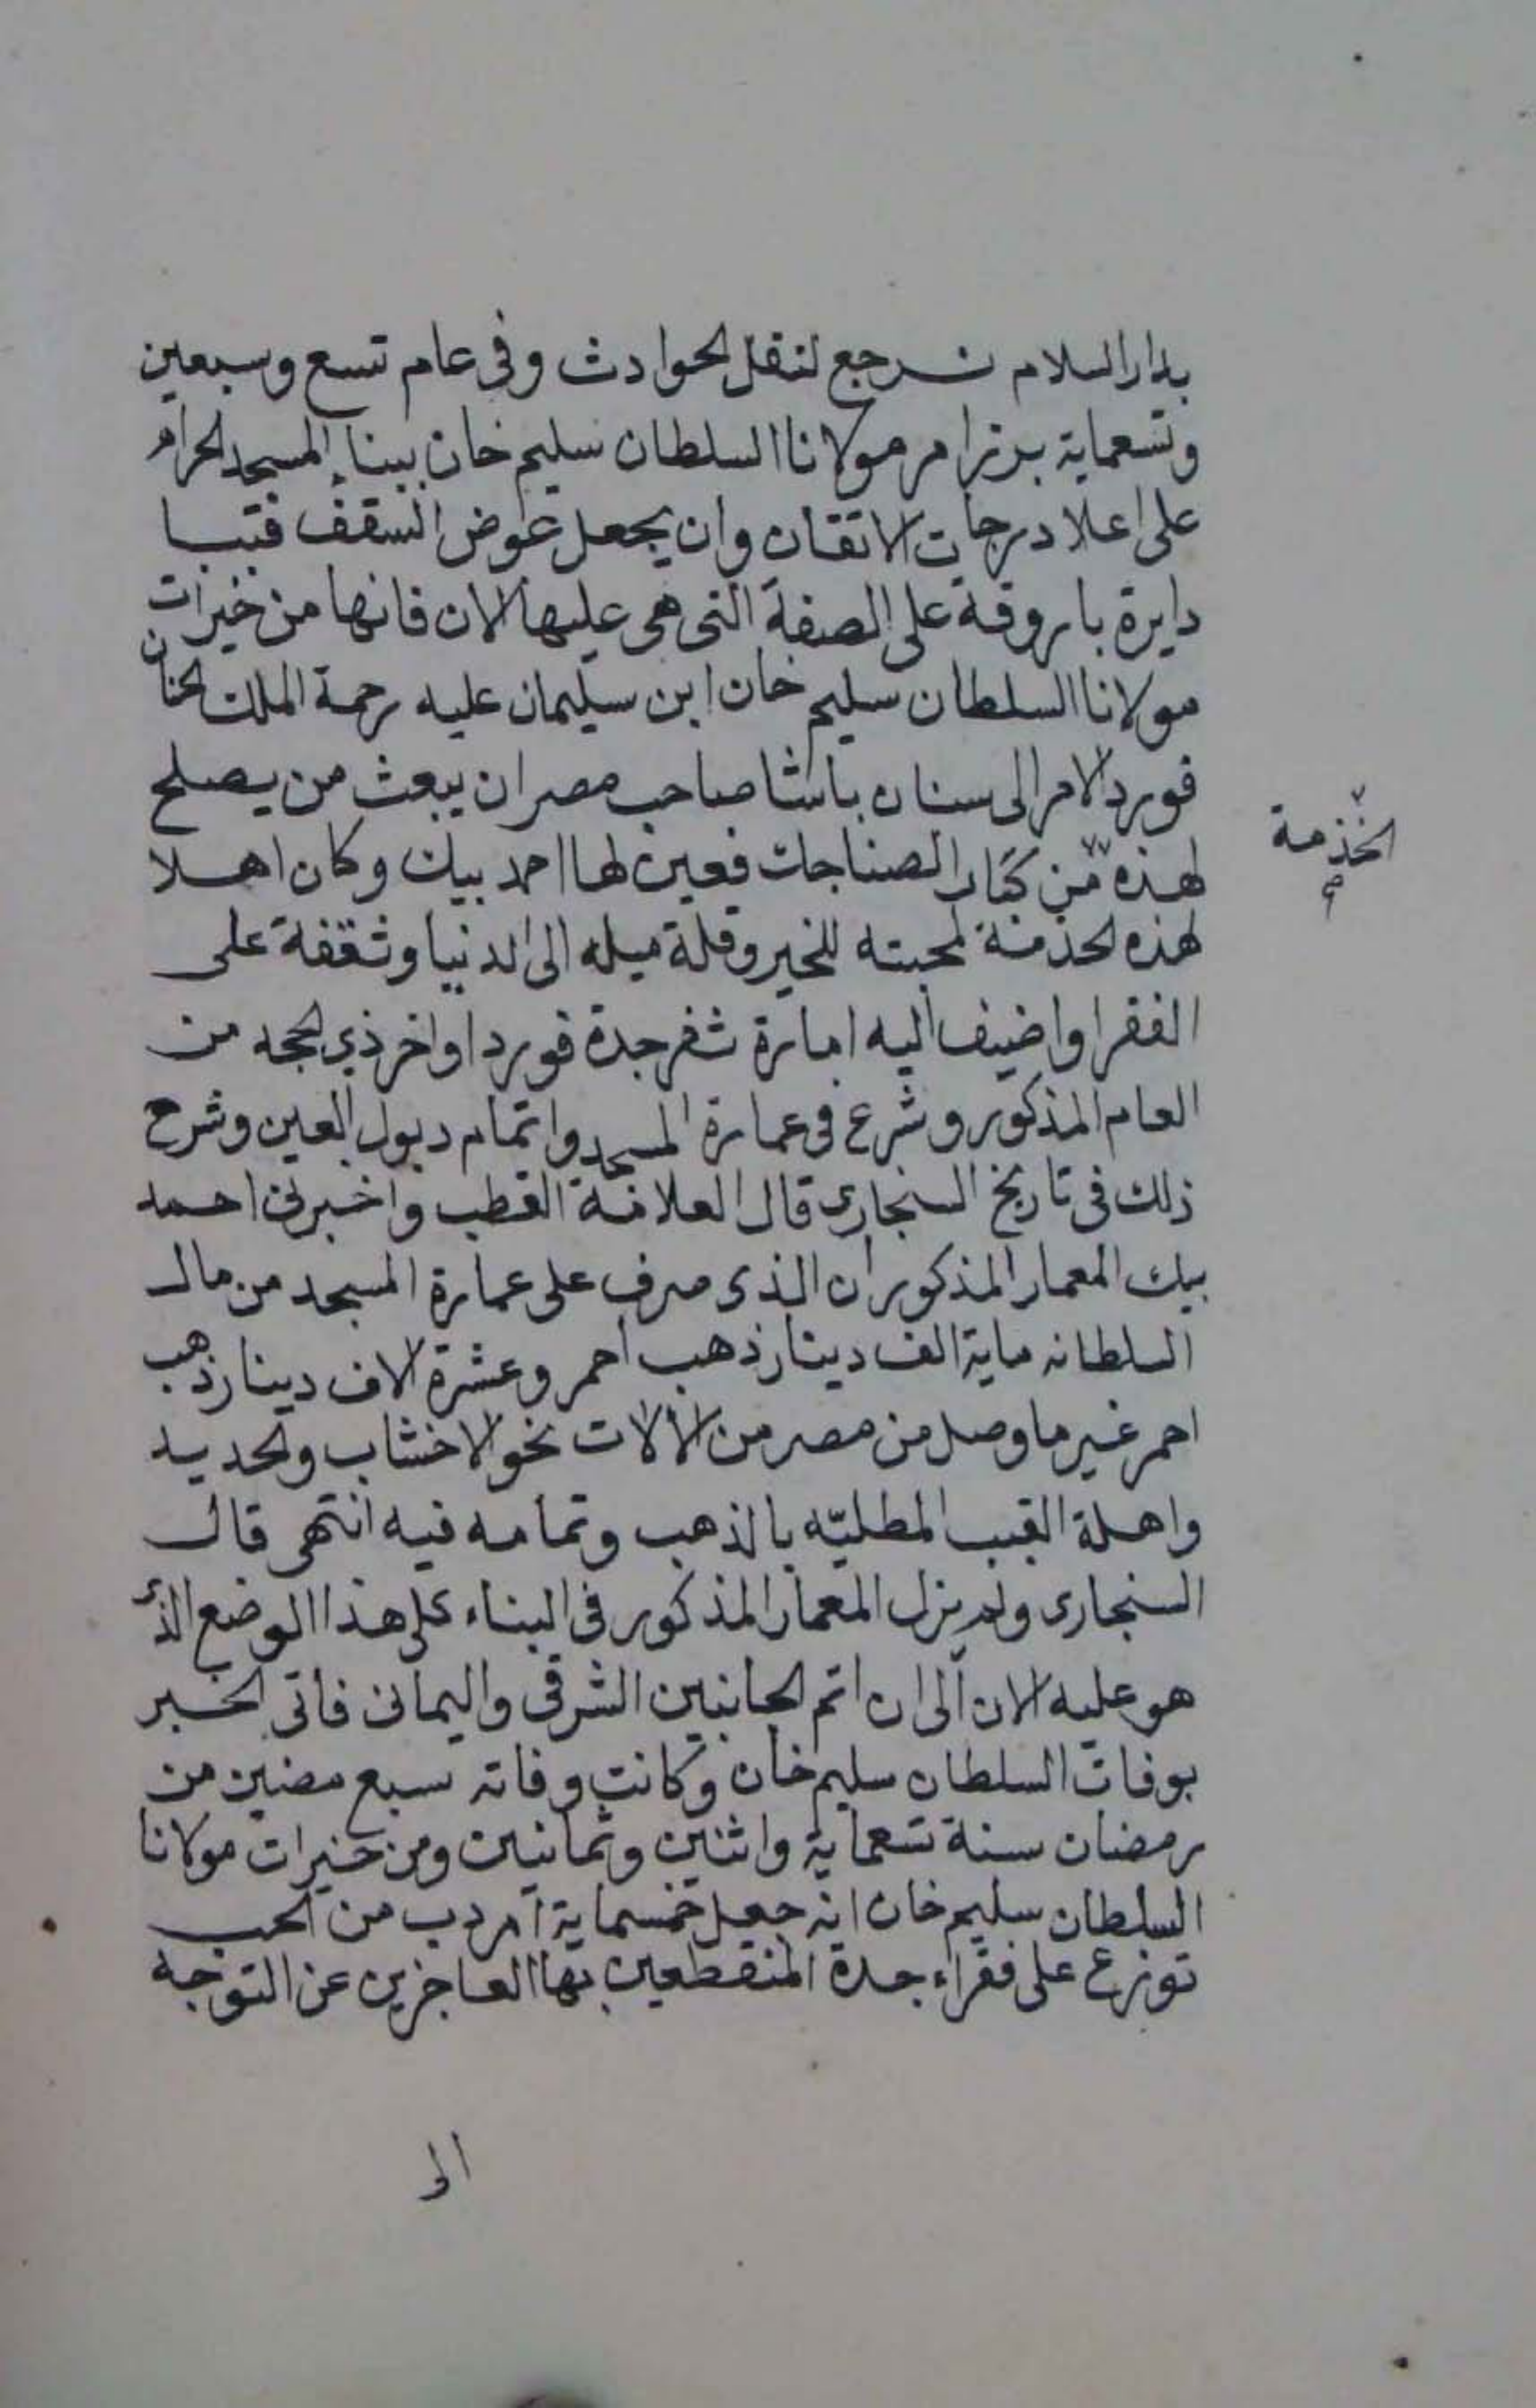 بدار السلام نرجع لنقل الحوادث وفى عام تسع وسبعين
وتسعماية برز امر مولانا السلطان سليم خان ببناء المسجد الحرام
على اعلا درجات الاتقان وان يجعل عوض السقف قببا
دايرة باروقة على الصفة التى هى عليها الان فانها من خيرات
مولانا السلطان سليم خان ابن سليمان عليه رحمة الملك الحنان
فورد الامر الى سنان باشا صاحب مصر ان يبعث من يصلح
لهذه من كبار الصناجات فعين لها احمد بيك وكان اهلا
الخذمة
صح
لهذه الخذمة لمحبته للخير وقلة ميله الى الدنيا وثقفة على
الفقرا واضيف اليه امارة ثغر جدة فورد اواخر ذي الحجه من
العام المذكور وشرع فى عمارة المسجد واتمام دبول العين وشرح
ذلك فى تاريخ السنجارى قال العلامة القطب واخبرنى احمد
بيك المعمار المذكور ان الذى صرف على عمارة المسجد من مال
السلطانه ماية الف دينار ذهب احمر وعشرة الاف دينار ذهب
احمر غير ما وصل من مصر من الالات نحو الاخشاب والحديد
واهلة القبب المطليّه بالذهب وتمامه فيه انتهى قال
السنجارى ولم يزل المعمار المذكور فى البناء على هذا الوضع الذى
هو عليه الان الى ان اتم الجانبين الشرقى واليمانى فاتى الخبر
بوفات السلطان سليم خان وكانت وفاته سبع مضين من
رمضان سنة تسعماية واثنين وثمانين ومن خيرات مولانا
السلطان سليم خان انه جعل خمسماية اردب من الحب
توزع على فقراء جدة المنقطعين بها العاجزين عن التوجه
الى